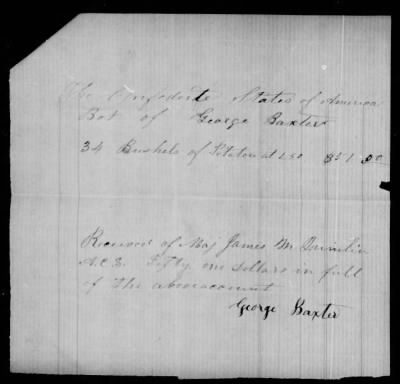 The Confederate States of America
Bot of George Baxter
34 Bushels of Potatoes at 1.50 $51.00
Received of Maj James M
A.C.S. Fifty one dollars in full
of the above account
George Baxter